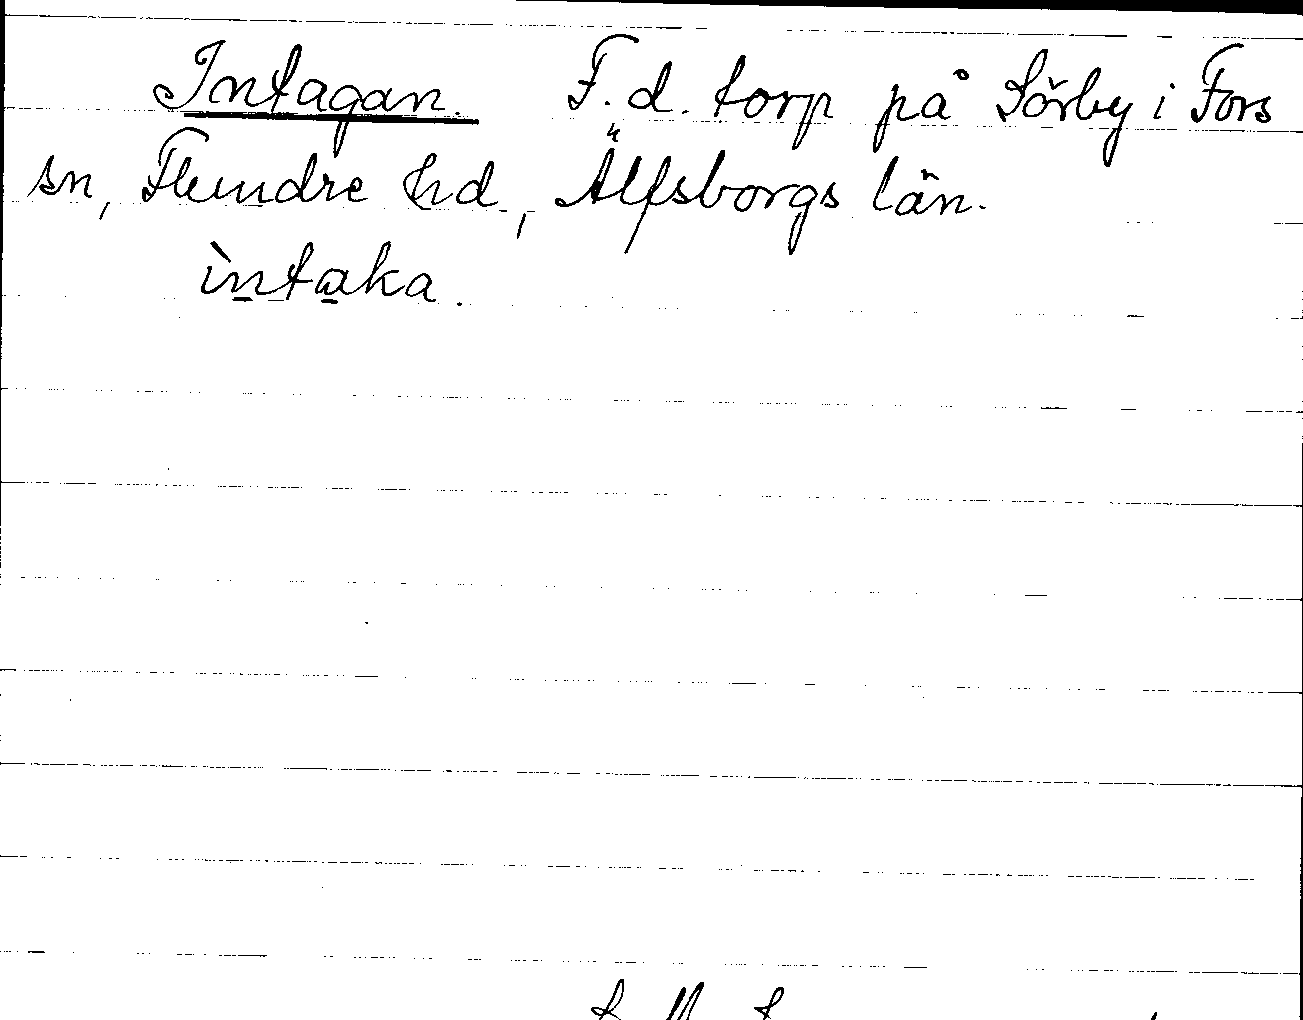 Intagan. F.d. torp på Sörby i Fors
sn, Flundre hd, Älfsborgs län.
ìntaka.